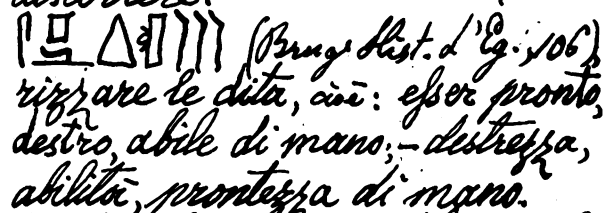 (Brugs Hist. d'Eg:, 106)
rizzare le dita, cioè: esser pronto,
destro, abile di mano; – destrezza,
abilità, prontezza di mano.